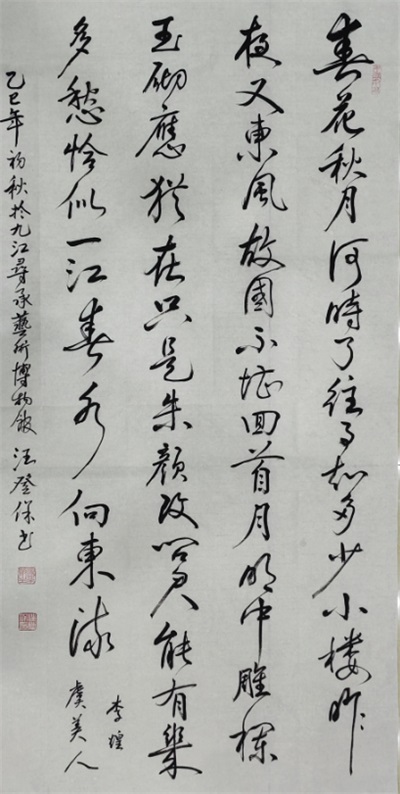 春花秋月何時了往事知多少小樓昨
夜又東風故國不堪回首月明中雕欄
玉砌應猶在只是朱顏改問君能有幾
多愁恰似一江春水向東流
李煜
虞美人
乙巳年初秋於九江尋承藝術博物館汪登保书